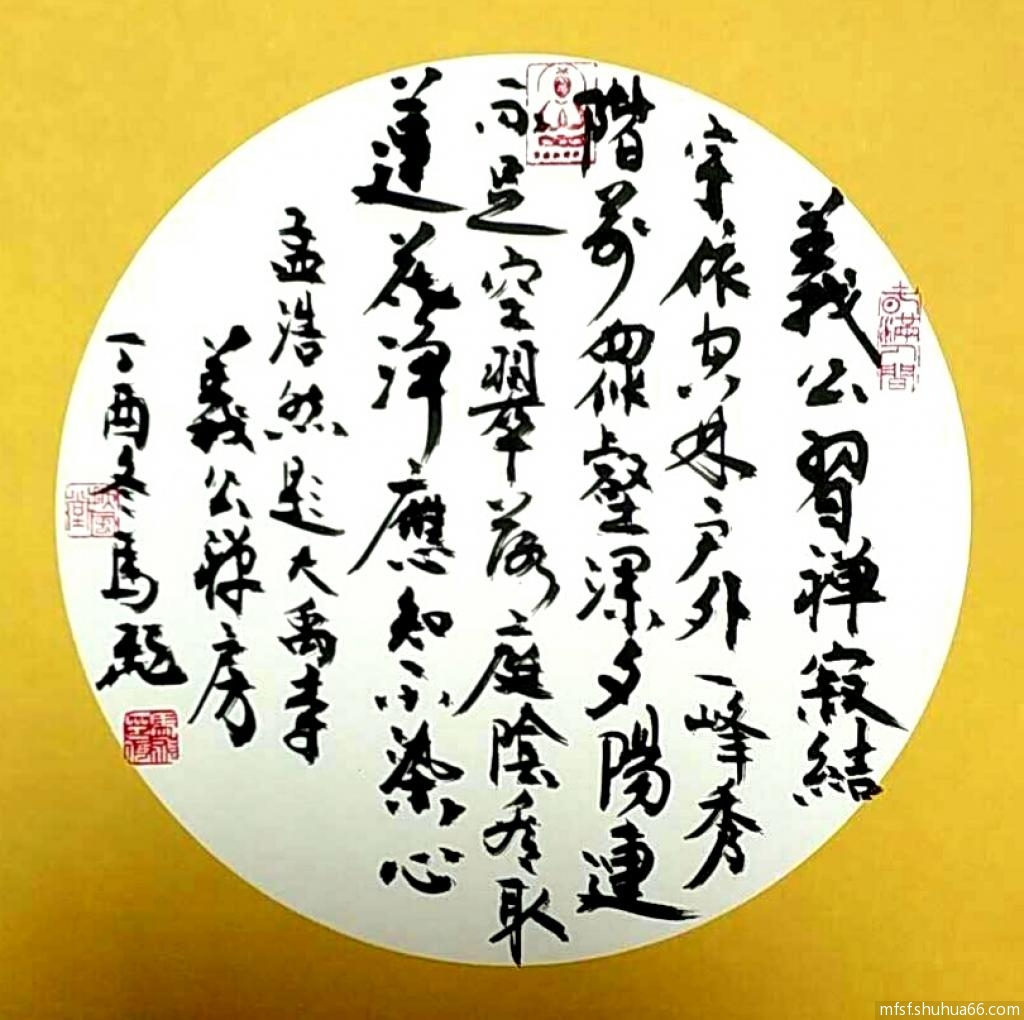 義公習禪寂結
宇依空林戶外一峰秀
階前眾壑深夕陽連
雨足空翠落庭陰看取
蓮花淨應知不染心
孟浩然題大禹寺
義公禪房
丁酉冬馬
mfsf.shuhua66.com